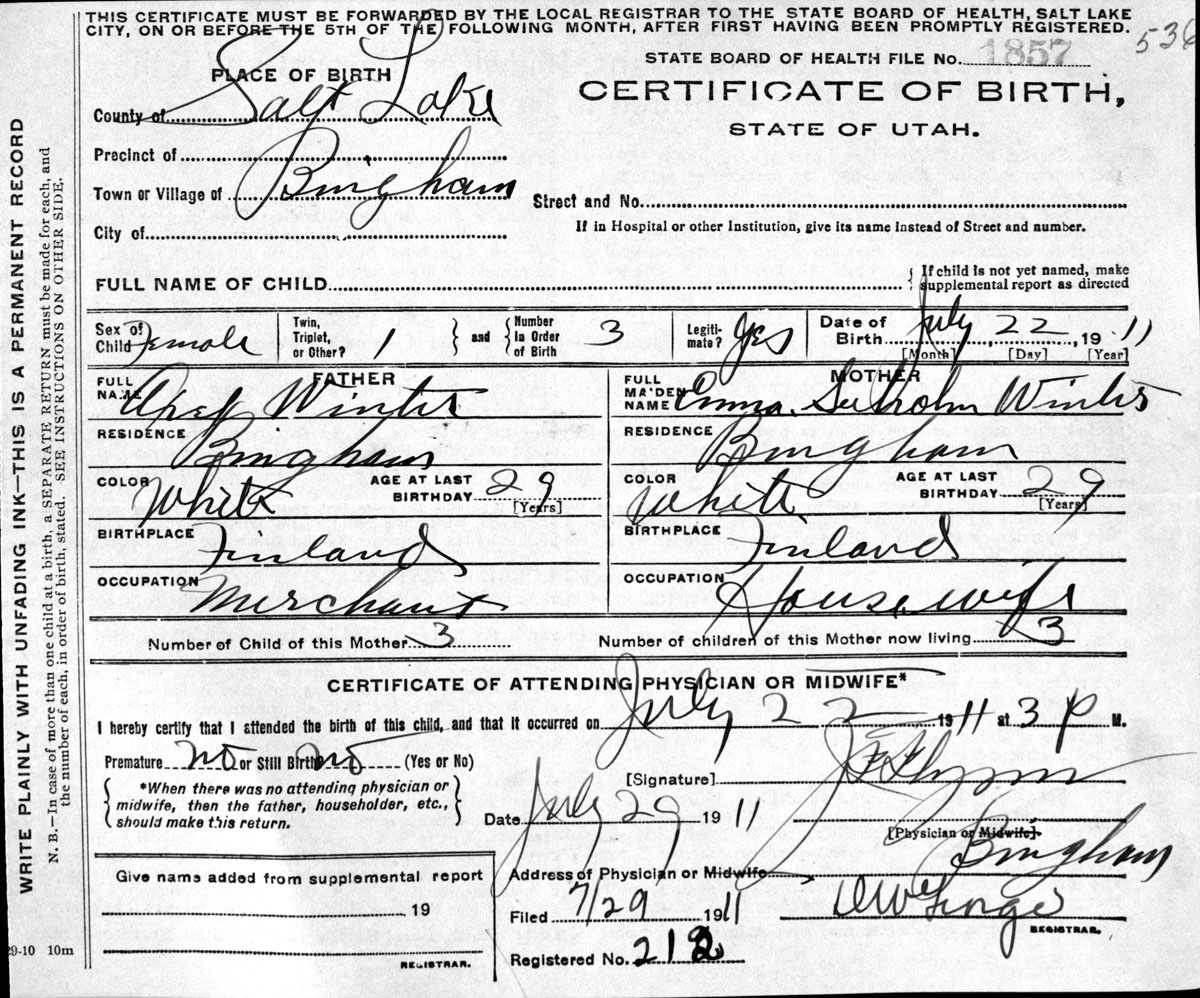 THIS CERTIFICATE MUST BE FORWARDED BY THE LOCAL REGISTRAR TO THE STATE BOARD OF HEALTH, SALT LAKE
CITY, ON OR BEFORE THE 5TH OF THE FOLLOWING MONTH, AFTER FIRST HAVING BEEN PROMPTLY REGISTERED.
536
STATE BOARD OF HEALTH FILE No. 1857
CERTIFICATE OF BIRTH,
STATE OF UTAH.
PLACE OF BIRTH
County of Salt Lake
Precinct of
Town or Village of Bingham
City of
Street and No.
If in Hospital or other Institution, give its name instead of Street and number.
FULL NAME OF CHILD
{If child is not yet named, make supplemental report as directed
Sex of Child Female
Twin, Triplet, or Other? 1 } and { Number in Order of Birth 3
Legiti-mate? Yes
Date of Birth July 22 1911
[Month] [Day] [Year]
FATHER
FULL NAME Winter
RESIDENCE Bingham
COLOR White AGE AT LAST BIRTHDAY 29 [Years]
BIRTHPLACE Finland
OCCUPATION Merchant
MOTHER
FULL MAIDEN NAME Emma Winter
RESIDENCE Bingham
COLOR White AGE AT LAST BIRTHDAY 29 [Years]
BIRTHPLACE Finland
OCCUPATION Housewife
Number of Child of this Mother 3 Number of children of this Mother now living 3
CERTIFICATE OF ATTENDING PHYSICIAN OR MIDWIFE*
I hereby certify that I attended the birth of this child, and that it occurred on July 22 1911 at 3 P M.
Premature no or Still Birth no (Yes or No)
{ *When there was no attending physician or
midwife, then the father, householder, etc.,
should make this return. }
[Signature]
Date July 29 1911
[Physician or Midwife]
Address of Physician or Midwife Bingham
Filed 7/29 1911
REGISTRAR.
Registered No. 212
Give name added from supplemental report
19
REGISTRAR.
29-10 10m
WRITE PLAINLY WITH UNFADING INK—THIS IS A PERMANENT RECORD
N. B.—In case of more than one child at a birth, a SEPARATE RETURN must be made for each, and
the number of each, in order of birth, stated. SEE INSTRUCTIONS ON OTHER SIDE.